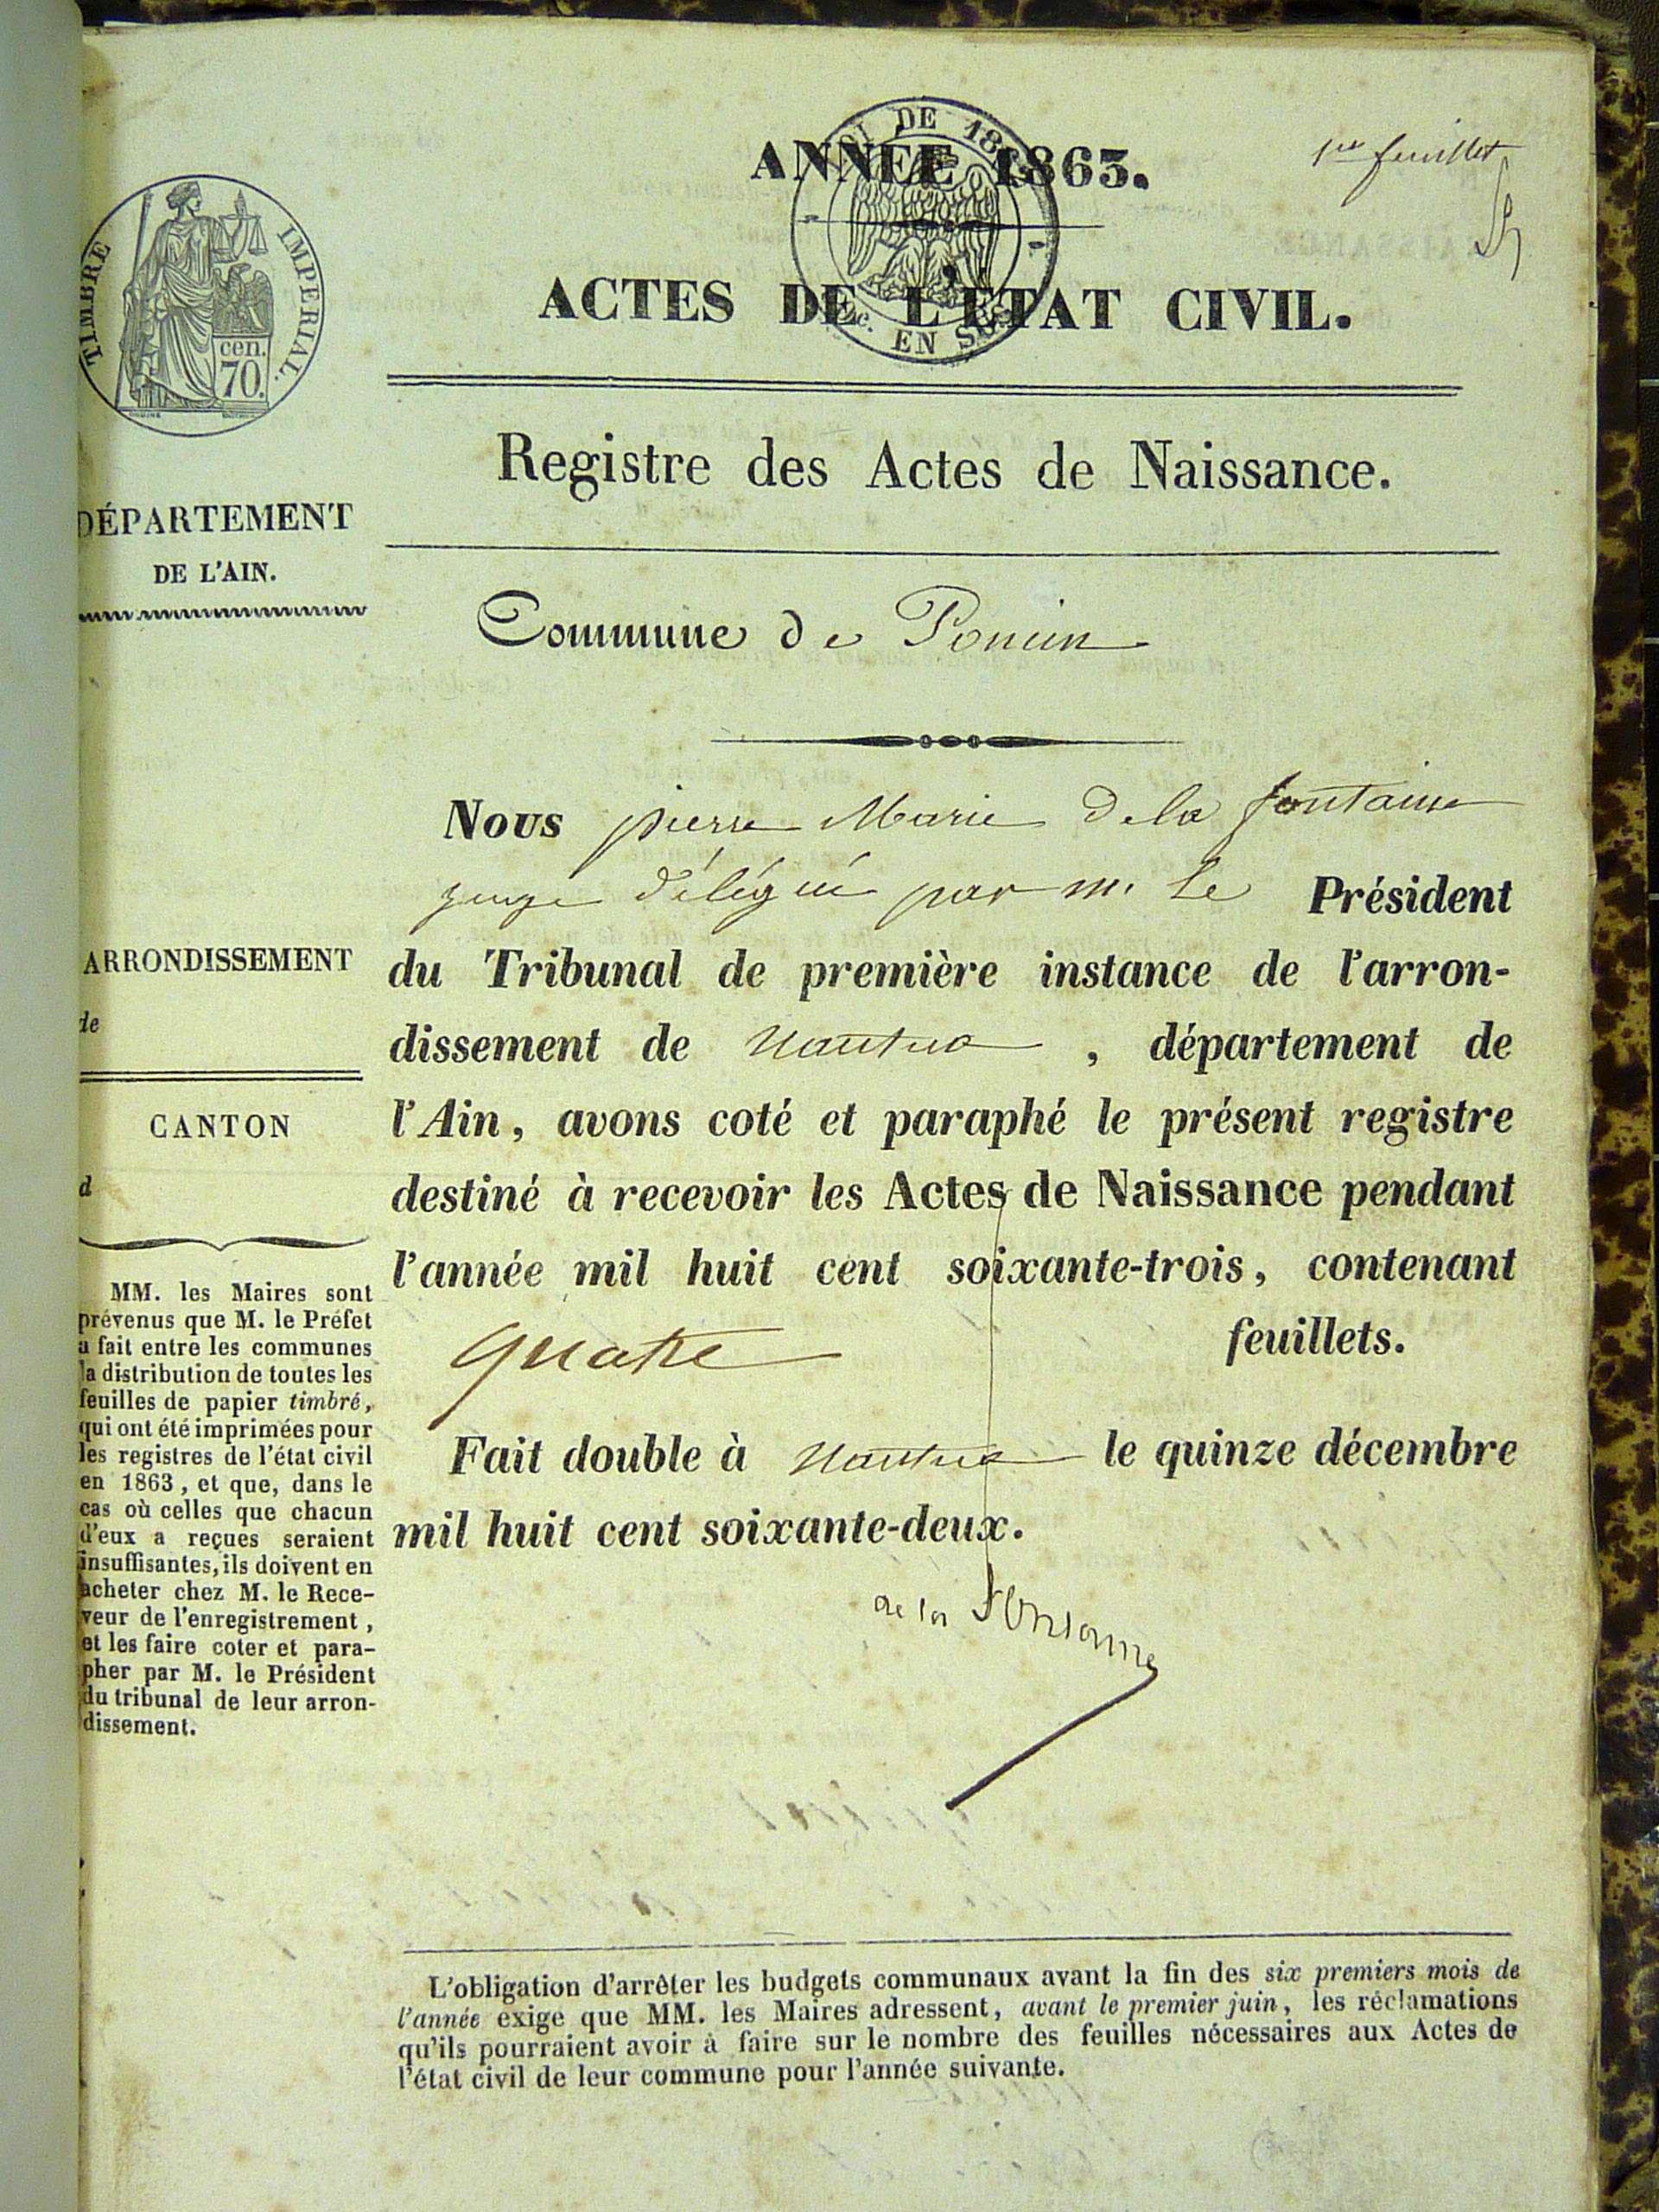 1er feuillet
ANNÉE 1863.
LOI DE 18
EN SUS
ACTES DE L'ÉTAT CIVIL.
TIMBRE IMPERIAL.
cen.
70.
Registre des Actes de Naissance.
DÉPARTEMENT
DE L'AIN.
Commune de Poncin
ARRONDISSEMENT
de
CANTON
d
MM. les Maires sont
prévenus que M. le Préfet
a fait entre les communes
la distribution de toutes les
feuilles de papier timbré,
qui ont été imprimées pour
les registres de l'état civil
en 1863, et que, dans le
cas où celles que chacun
d'eux a reçues seraient
insuffisantes, ils doivent en
acheter chez M. le Rece-
veur de l'enregistrement,
et les faire coter et para-
pher par M. le Président
du tribunal de leur arron-
dissement.
Nous pierre Marie de la fontaine
juge délégué par m. Le Président
du Tribunal de première instance de l'arron-
dissement de Nantua , département de
l'Ain, avons coté et paraphé le présent registre
destiné à recevoir les Actes de Naissance pendant
l'année mil huit cent soixante-trois, contenant
quatre feuillets.
Fait double à Nantua le quinze décembre
mil huit cent soixante-deux.
de la fontaine
L'obligation d'arrêter les budgets communaux avant la fin des six premiers mois de
l'année exige que MM. les Maires adressent, avant le premier juin, les réclamations
qu'ils pourraient avoir à faire sur le nombre des feuilles nécessaires aux Actes de
l'état civil de leur commune pour l'année suivante.